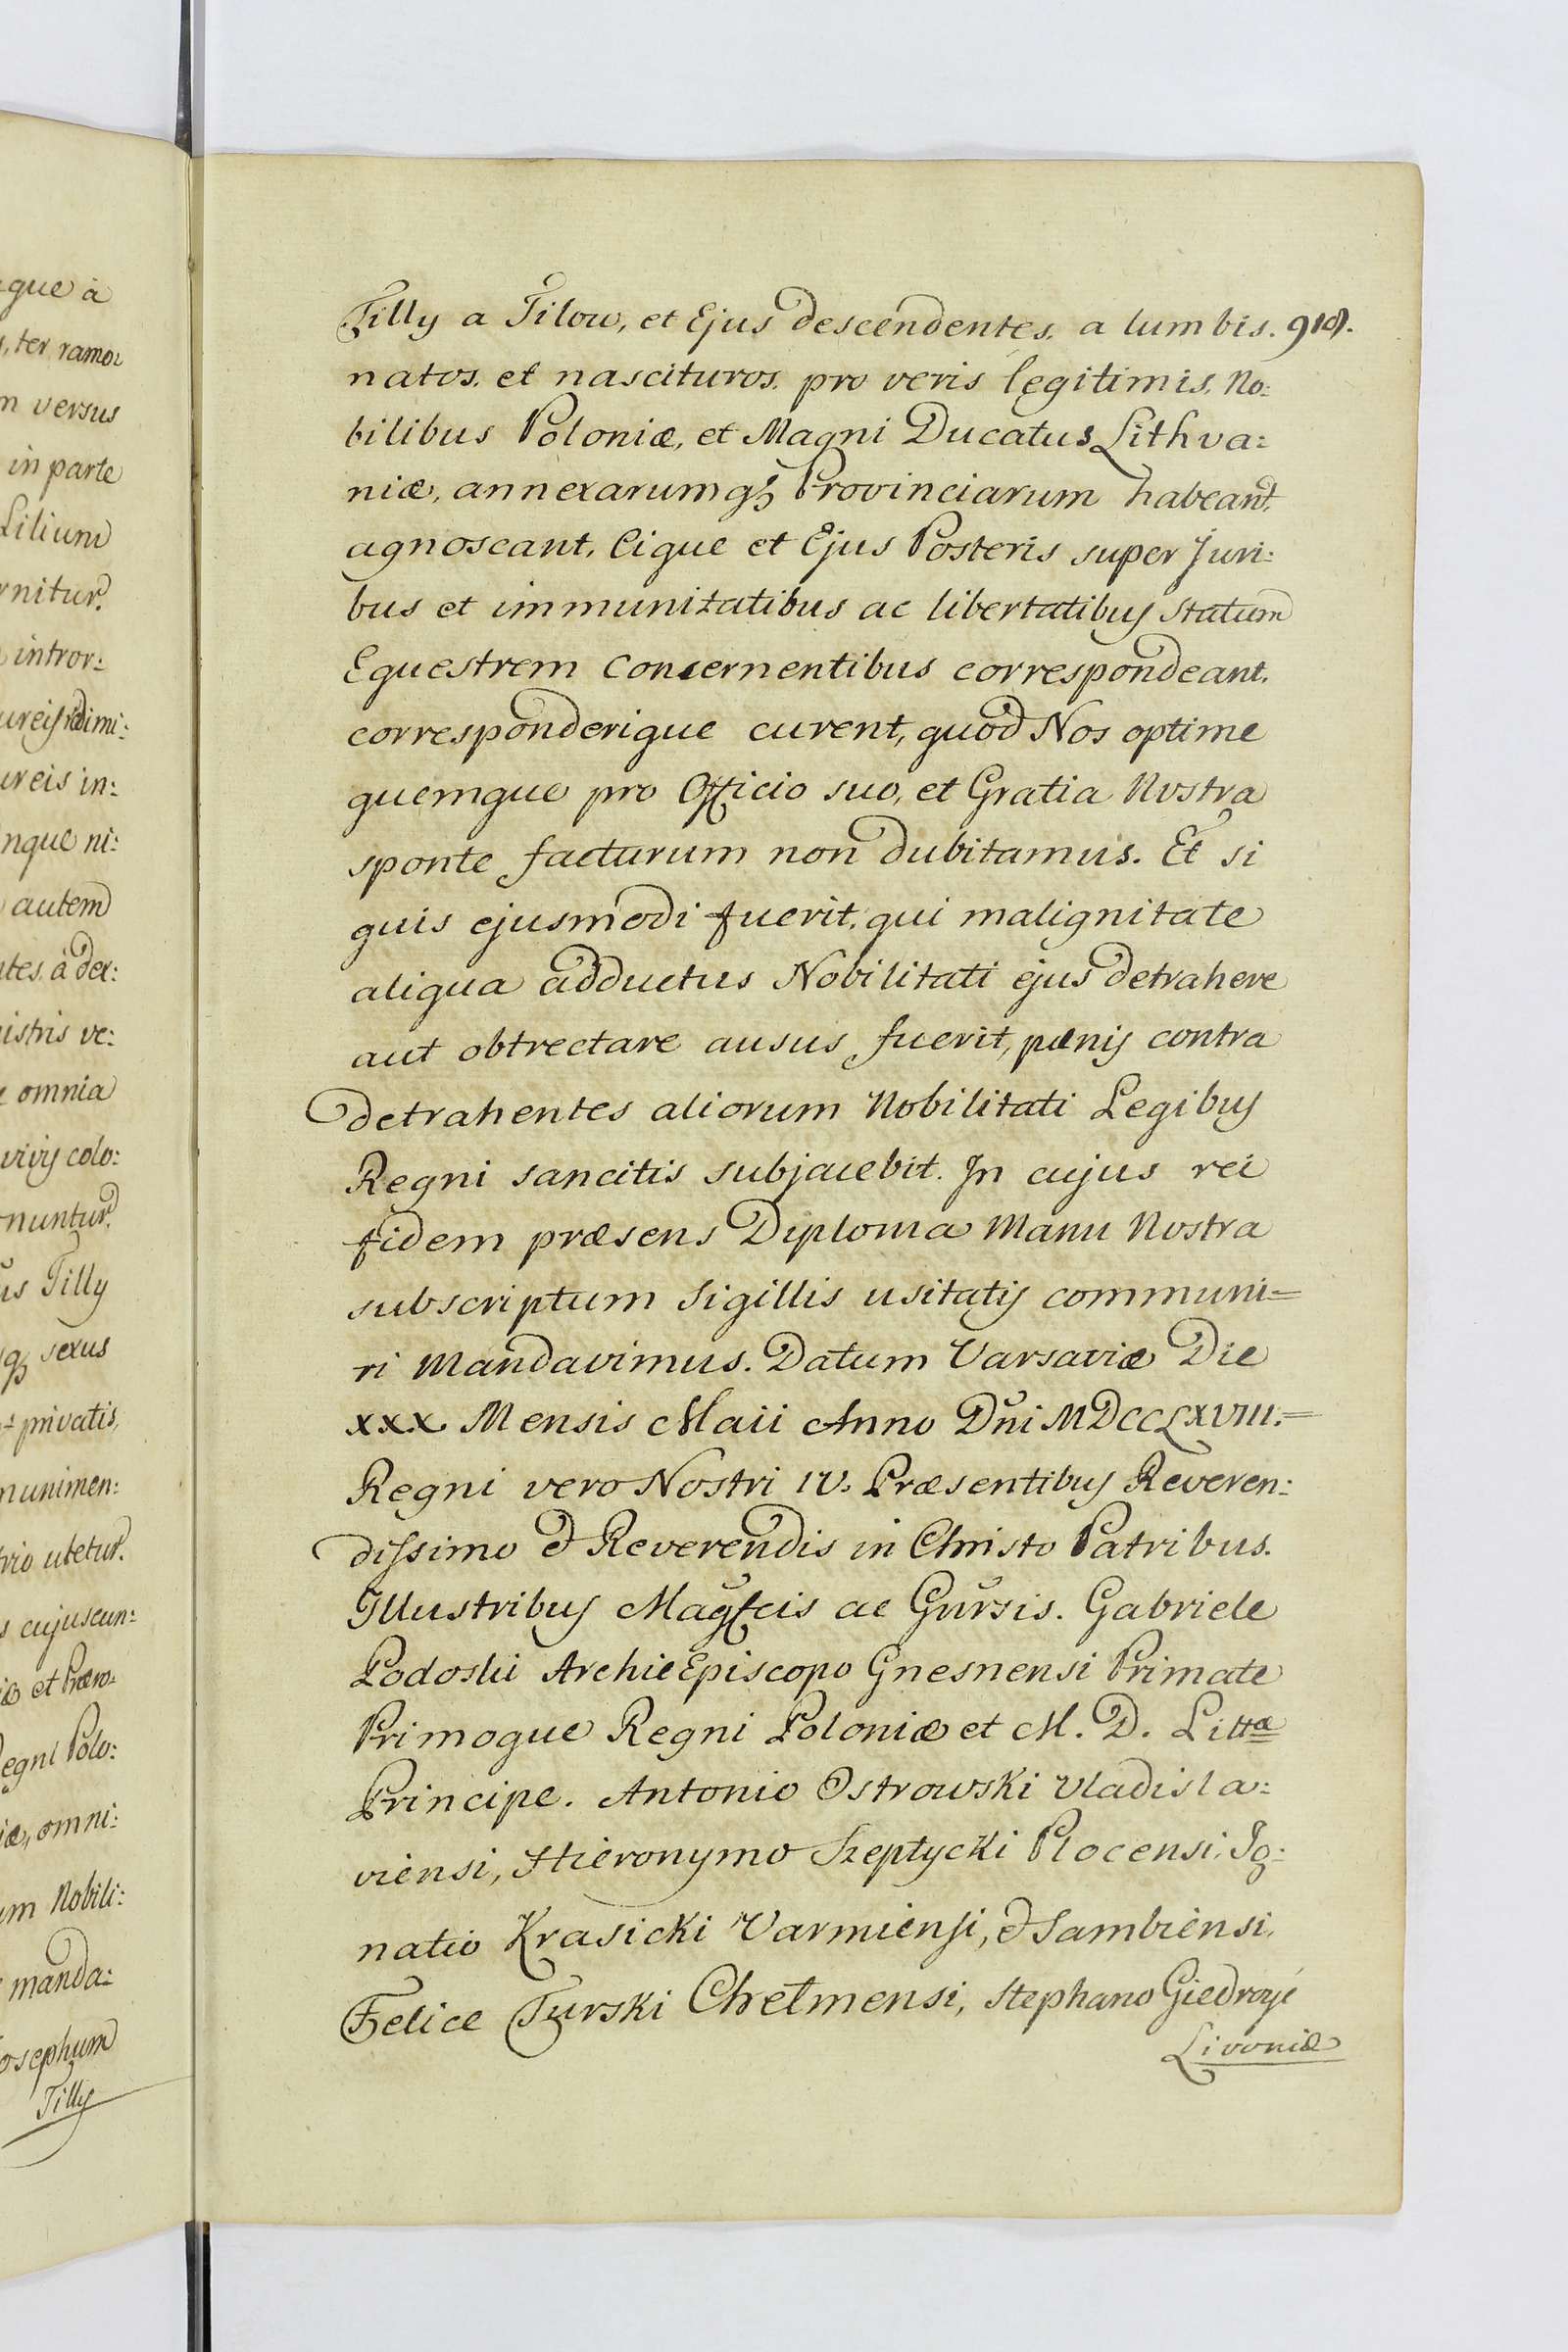 gue à
, ter ramo:
m versus
in parte
Lilium
rnitur.
intror:
ureis in:
nque ni:
autem
tes à dex:
istris ve:
omnia
vivis colo:
nuntur.
us Tilly
sexus
privatis,
munimen:
rio utetur.
s cujuscun:
et Præro-
Regni Polo:
iæ, omni:
um Nobili:
manda:
Josephum
Tilly
Tilly a Tilow, et Ejus descendentes, a lumbis. 918.
natos, et nascituros, pro veris legitimis, No:
bilibus Poloniæ, et Magni Ducatus Lithva:
niæ, annexarumqꝫ Provinciarum habeant,
agnoscant, Eique et Ejus Posteris super Juri:
bus et immunitatibus ac libertatibus Statum
Equestrem concernentibus correspondeant,
corresponderique curent, quod Nos optime
quemque pro Officio suo, et Gratia Nostra
sponte facturum non dubitamus. Et si
quis ejusmodi fuerit, qui malignitate
aliqua adductus Nobilitati ejus detrahere
aut obtrectare ausus fuerit, pœnis contra
detrahentes aliorum Nobilitati Legibus
Regni sancitis subjacebit. In cujus rei
fidem præsens Diploma Manu Nostra
subscriptum Sigillis usitatis communi=
ri Mandavimus. Datum Varsaviæ Die
XXX Mensis Maii Anno Dñi MDCCLXVIII.=
Regni vero Nostri IV. Præsentibus Reveren:
dissimo & Reverendis in Christo Patribus.
Illustribus Magfcis ac Gnrsis. Gabriele
Podoski ArchieEpiscopo Gnesnensi Primate
Primoque Regni Poloniæ et M. D. Littæ
Principe. Antonio Ostrowski Vladisla:
viensi, Hieronymo Szeptycki Plocensi, Ig:
natio Krasicki Varmiensi, & Sambiensi,
Felice Turski Chełmensi, Stephano Giedroyć
Livoniæ